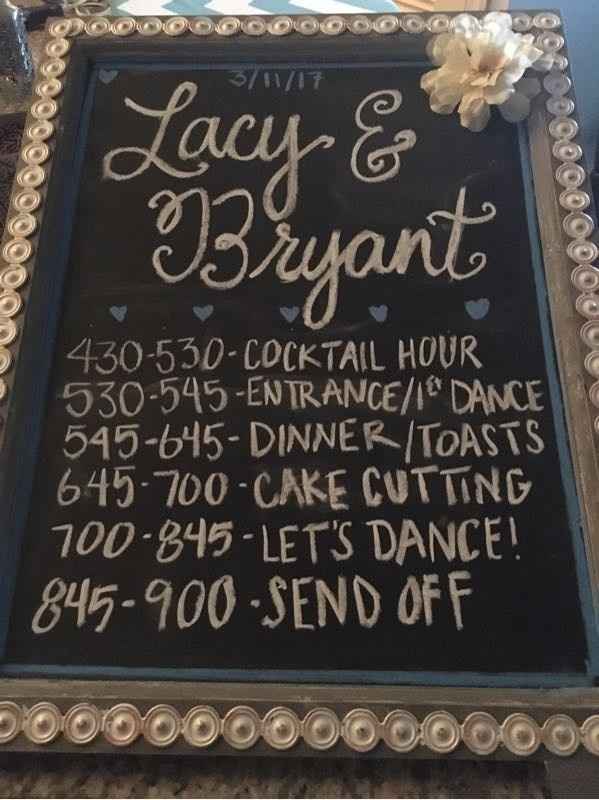 3/11/17
Lacy &
Bryant
430-530-COCKTAIL HOUR
530-545-ENTRANCE/1st DANCE
545-645-DINNER/TOASTS
645-700-CAKE CUTTING
700-845-LET'S DANCE!
845-900-SEND OFF